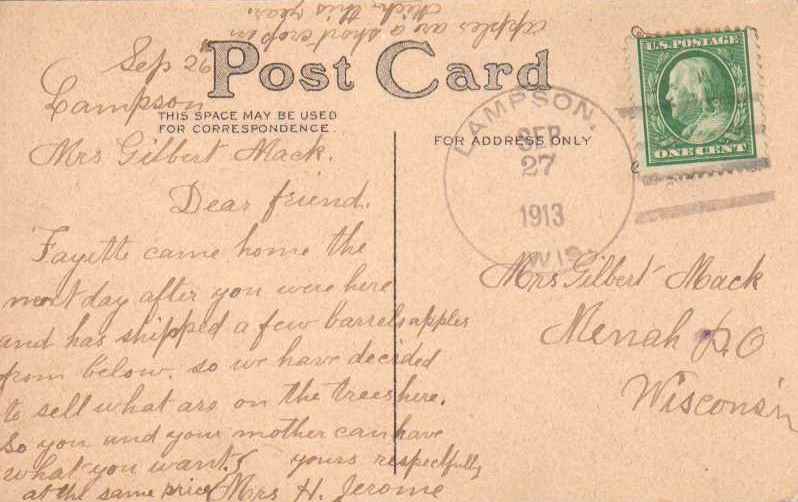 apples are a short crop in
Mich. this year.
Sep 26
Post Card
Lampson
THIS SPACE MAY BE USED
FOR CORRESPONDENCE
FOR ADDRESS ONLY
Mrs Gilbert Mack.
Dear friend.
Fayette came home the
next day after you were here
and has shipped a few barrels apples
from below. so we have decided
to sell what are on the trees here.
So you and your mother can have
what you want
at the same price
yours respectfully
Mrs H. Jerome
LAMPSON,
SEP
27
1913
WIS.
U.S. POSTAGE
ONE CENT
Mrs Gilbert Mack
Menah P.O
Wisconsin